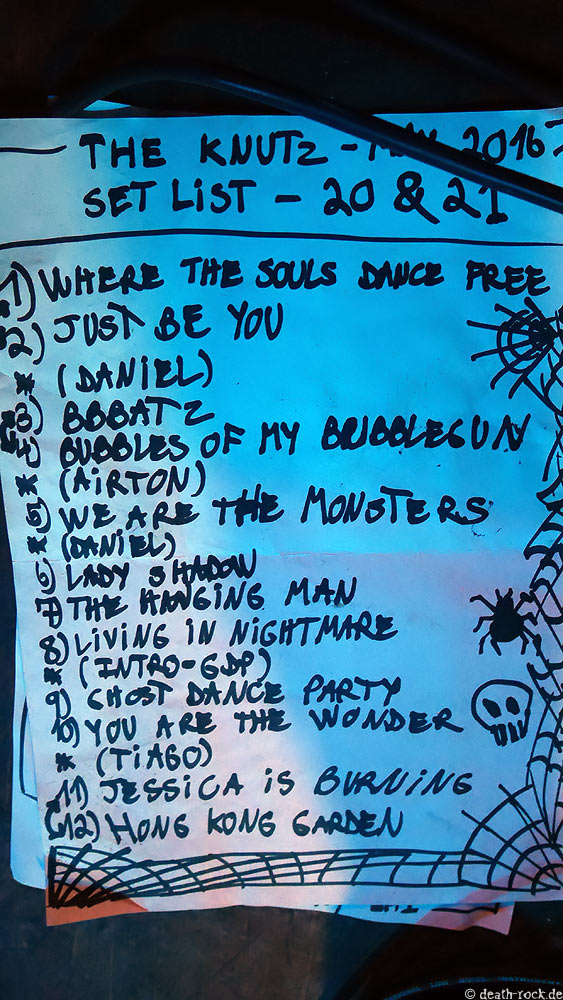 THE KNUTZ - MAY 2016
SET LiST - 20 & 21
1) WHERE THE SOULS DANCE FREE
2) JUST BE YOU
* (DANiEL)
3) BBBATZ
4) BUBBLES OF MY BUBBLEGUN
* (AiRTON)
5) WE ARE THE MONSTERS
* (DANiEL)
6) LADY SHADOW
7) THE HANGING MAN
8) LIVING IN NIGHTMARE
* (INTRO-GDP)
9) GHOST DANCE PARTY
10) YOU ARE THE WONDER
* (TiAGO)
11) JESSiCA iS BURNiNG
(12) HONG KONG GARDEN
© death-rock.de